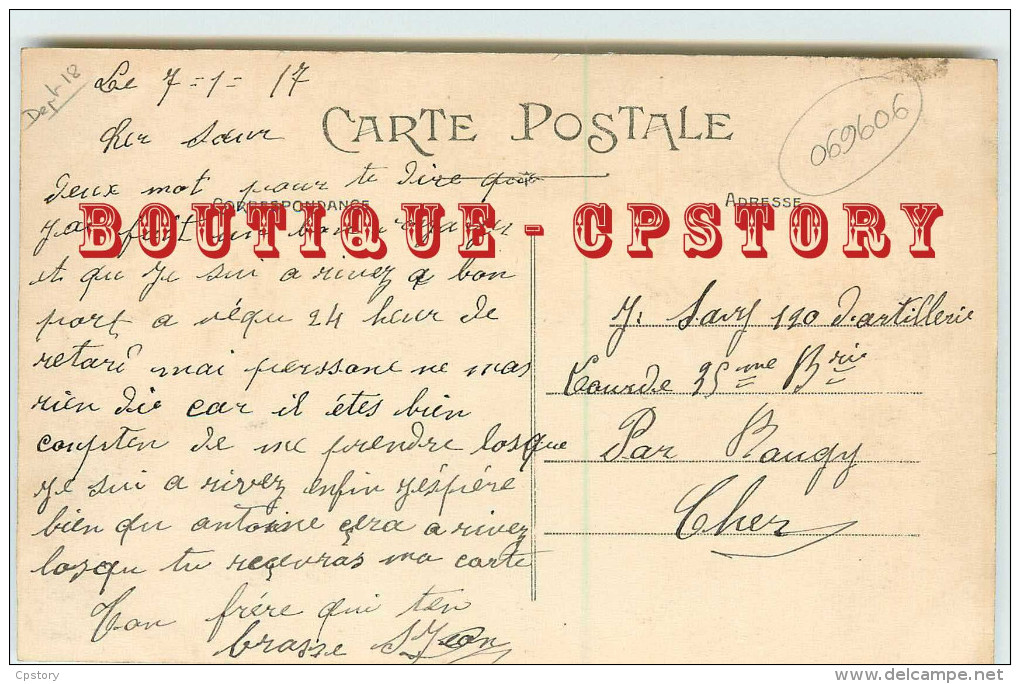 Dept 18
Le 7-1-17
CARTE POSTALE
069606
Cher Sœur
deux mot pour te dire que
CORRESPONDANCE
ADRESSE
BOUTIQUE - CPSTORY
j'ai fait un bon
et qu je sui a rivez a bon
port a véqu 24 heur de
retard mai perssone ne mas
rien die car il étes bien
conpten de me prendre losque
je sui a rivez enfin j'éspére
bien qu antoine çera a rivez
losqu tu reçevras ma carte
Ton frére qui ten
brasse S Jean
J. Savy 120 d'artillerie
Lourde 25me Brie
Par Baugy
Cher
Cpstory
http://www.delcampe.net